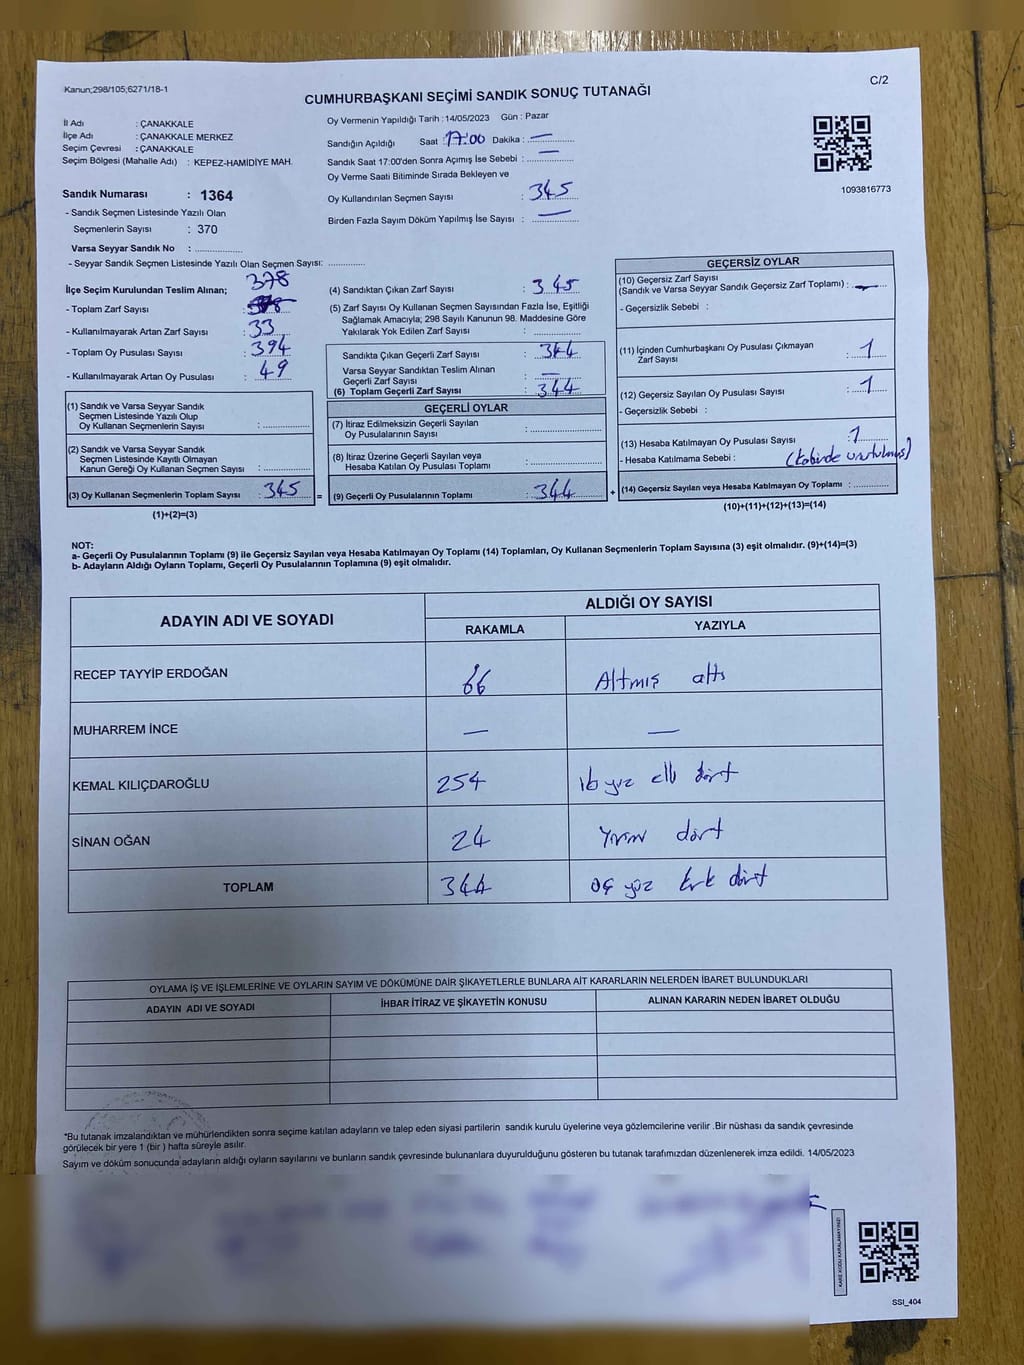 Kanun;298/105;6271/18-1
C/2
CUMHURBAŞKANI SEÇİMİ SANDIK SONUÇ TUTANAĞI
İl Adı : ÇANAKKALE
İlçe Adı : ÇANAKKALE MERKEZ
Seçim Çevresi : ÇANAKKALE
Seçim Bölgesi (Mahalle Adı) : KEPEZ-HAMİDİYE MAH.
Sandık Numarası : 1364
- Sandık Seçmen Listesinde Yazılı Olan
Seçmenlerin Sayısı : 370
Varsa Seyyar Sandık No : ..............
- Seyyar Sandık Seçmen Listesinde Yazılı Olan Seçmen Sayısı: ..............
Oy Vermenin Yapıldığı Tarih : 14/05/2023 Gün : Pazar
Sandığın Açıldığı Saat : 17:00 Dakika : —
Sandık Saat 17:00'den Sonra Açımış İse Sebebi : —
Oy Verme Saati Bitiminde Sırada Bekleyen ve
Oy Kullandırılan Seçmen Sayısı : 345
Birden Fazla Sayım Döküm Yapılmış İse Sayısı : —
1093816773
İlçe Seçim Kurulundan Teslim Alınan;
378
- Toplam Zarf Sayısı :
- Kullanılmayarak Artan Zarf Sayısı : 33
- Toplam Oy Pusulası Sayısı : 394
- Kullanılmayarak Artan Oy Pusulası : 49
(1) Sandık ve Varsa Seyyar Sandık
Seçmen Listesinde Yazılı Olup
Oy Kullanan Seçmenlerin Sayısı : ..............
(2) Sandık ve Varsa Seyyar Sandık
Seçmen Listesinde Kayıtlı Olmayan
Kanun Gereği Oy Kullanan Seçmen Sayısı : ..............
(3) Oy Kullanan Seçmenlerin Toplam Sayısı : 345 =
(1)+(2)=(3)
(4) Sandıktan Çıkan Zarf Sayısı : 345
(5) Zarf Sayısı Oy Kullanan Seçmen Sayısından Fazla İse, Eşitliği
Sağlamak Amacıyla; 298 Sayılı Kanunun 98. Maddesine Göre
Yakılarak Yok Edilen Zarf Sayısı : ..............
Sandıkta Çıkan Geçerli Zarf Sayısı : 344
Varsa Seyyar Sandıktan Teslim Alınan
Geçerli Zarf Sayısı : —
(6) Toplam Geçerli Zarf Sayısı : 344
GEÇERLİ OYLAR
(7) İtiraz Edilmeksizin Geçerli Sayılan
Oy Pusulalarının Sayısı : ..............
(8) İtiraz Üzerine Geçerli Sayılan veya
Hesaba Katılan Oy Pusulası Toplamı : ..............
(9) Geçerli Oy Pusulalarının Toplamı : 344 +
GEÇERSİZ OYLAR
(10) Geçersiz Zarf Sayısı
(Sandık ve Varsa Seyyar Sandık Geçersiz Zarf Toplamı) : —
- Geçersizlik Sebebi :
(11) İçinden Cumhurbaşkanı Oy Pusulası Çıkmayan
Zarf Sayısı : 1
(12) Geçersiz Sayılan Oy Pusulası Sayısı : 1
- Geçersizlik Sebebi :
(13) Hesaba Katılmayan Oy Pusulası Sayısı : 1
- Hesaba Katılmama Sebebi : (kabinde unutulmuş)
(14) Geçersiz Sayılan veya Hesaba Katılmayan Oy Toplamı : ..............
(10)+(11)+(12)+(13)=(14)
NOT:
a- Geçerli Oy Pusulalarının Toplamı (9) ile Geçersiz Sayılan veya Hesaba Katılmayan Oy Toplamı (14) Toplamları, Oy Kullanan Seçmenlerin Toplam Sayısına (3) eşit olmalıdır. (9)+(14)=(3)
b- Adayların Aldığı Oyların Toplamı, Geçerli Oy Pusulalarının Toplamına (9) eşit olmalıdır.
ADAYIN ADI VE SOYADI ALDIĞI OY SAYISI
RAKAMLA YAZIYLA
RECEP TAYYİP ERDOĞAN 66 Altmış altı
MUHARREM İNCE — —
KEMAL KILIÇDAROĞLU 254 iki yüz elli dört
SİNAN OĞAN 24 Yirmi dört
TOPLAM 344 üç yüz kırk dört
OYLAMA İŞ VE İŞLEMLERİNE VE OYLARIN SAYIM VE DÖKÜMÜNE DAİR ŞİKAYETLERLE BUNLARA AİT KARARLARIN NELERDEN İBARET BULUNDUKLARI
ADAYIN ADI VE SOYADI İHBAR İTİRAZ VE ŞİKAYETİN KONUSU ALINAN KARARIN NEDEN İBARET OLDUĞU
*Bu tutanak imzalandıktan ve mühürlendikten sonra seçime katılan adayların ve talep eden siyasi partilerin sandık kurulu üyelerine veya gözlemcilerine verilir .Bir nüshası da sandık çevresinde
görülecek bir yere 1 (bir ) hafta süreyle asılır.
Sayım ve döküm sonucunda adayların aldığı oyların sayılarını ve bunların sandık çevresinde bulunanlara duyurulduğunu gösteren bu tutanak tarafımızdan düzenlenerek imza edildi. 14/05/2023
KARE KODU KARALAMAYINIZ!
SSI_404